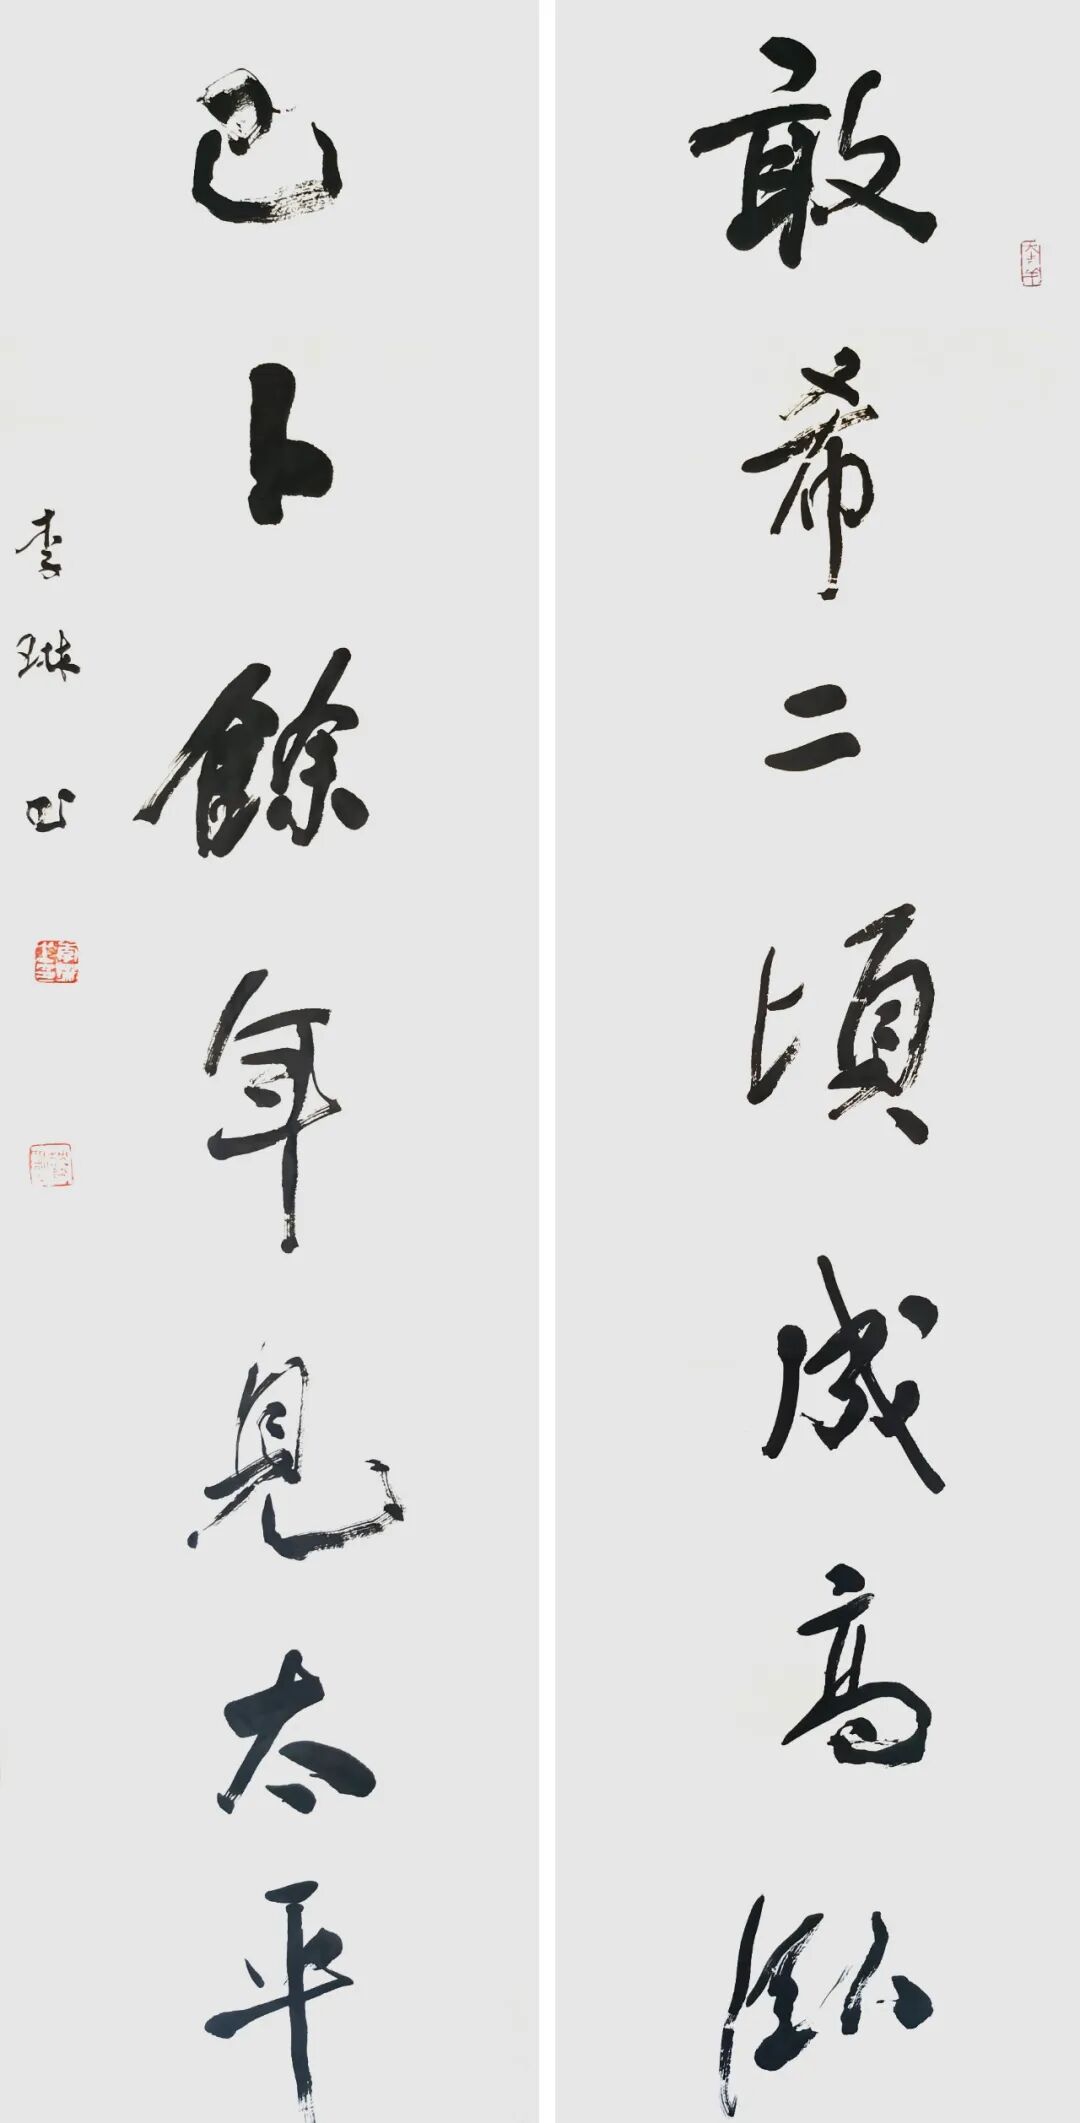 敢希二頃成高臥
已卜餘年見太平
李琳书